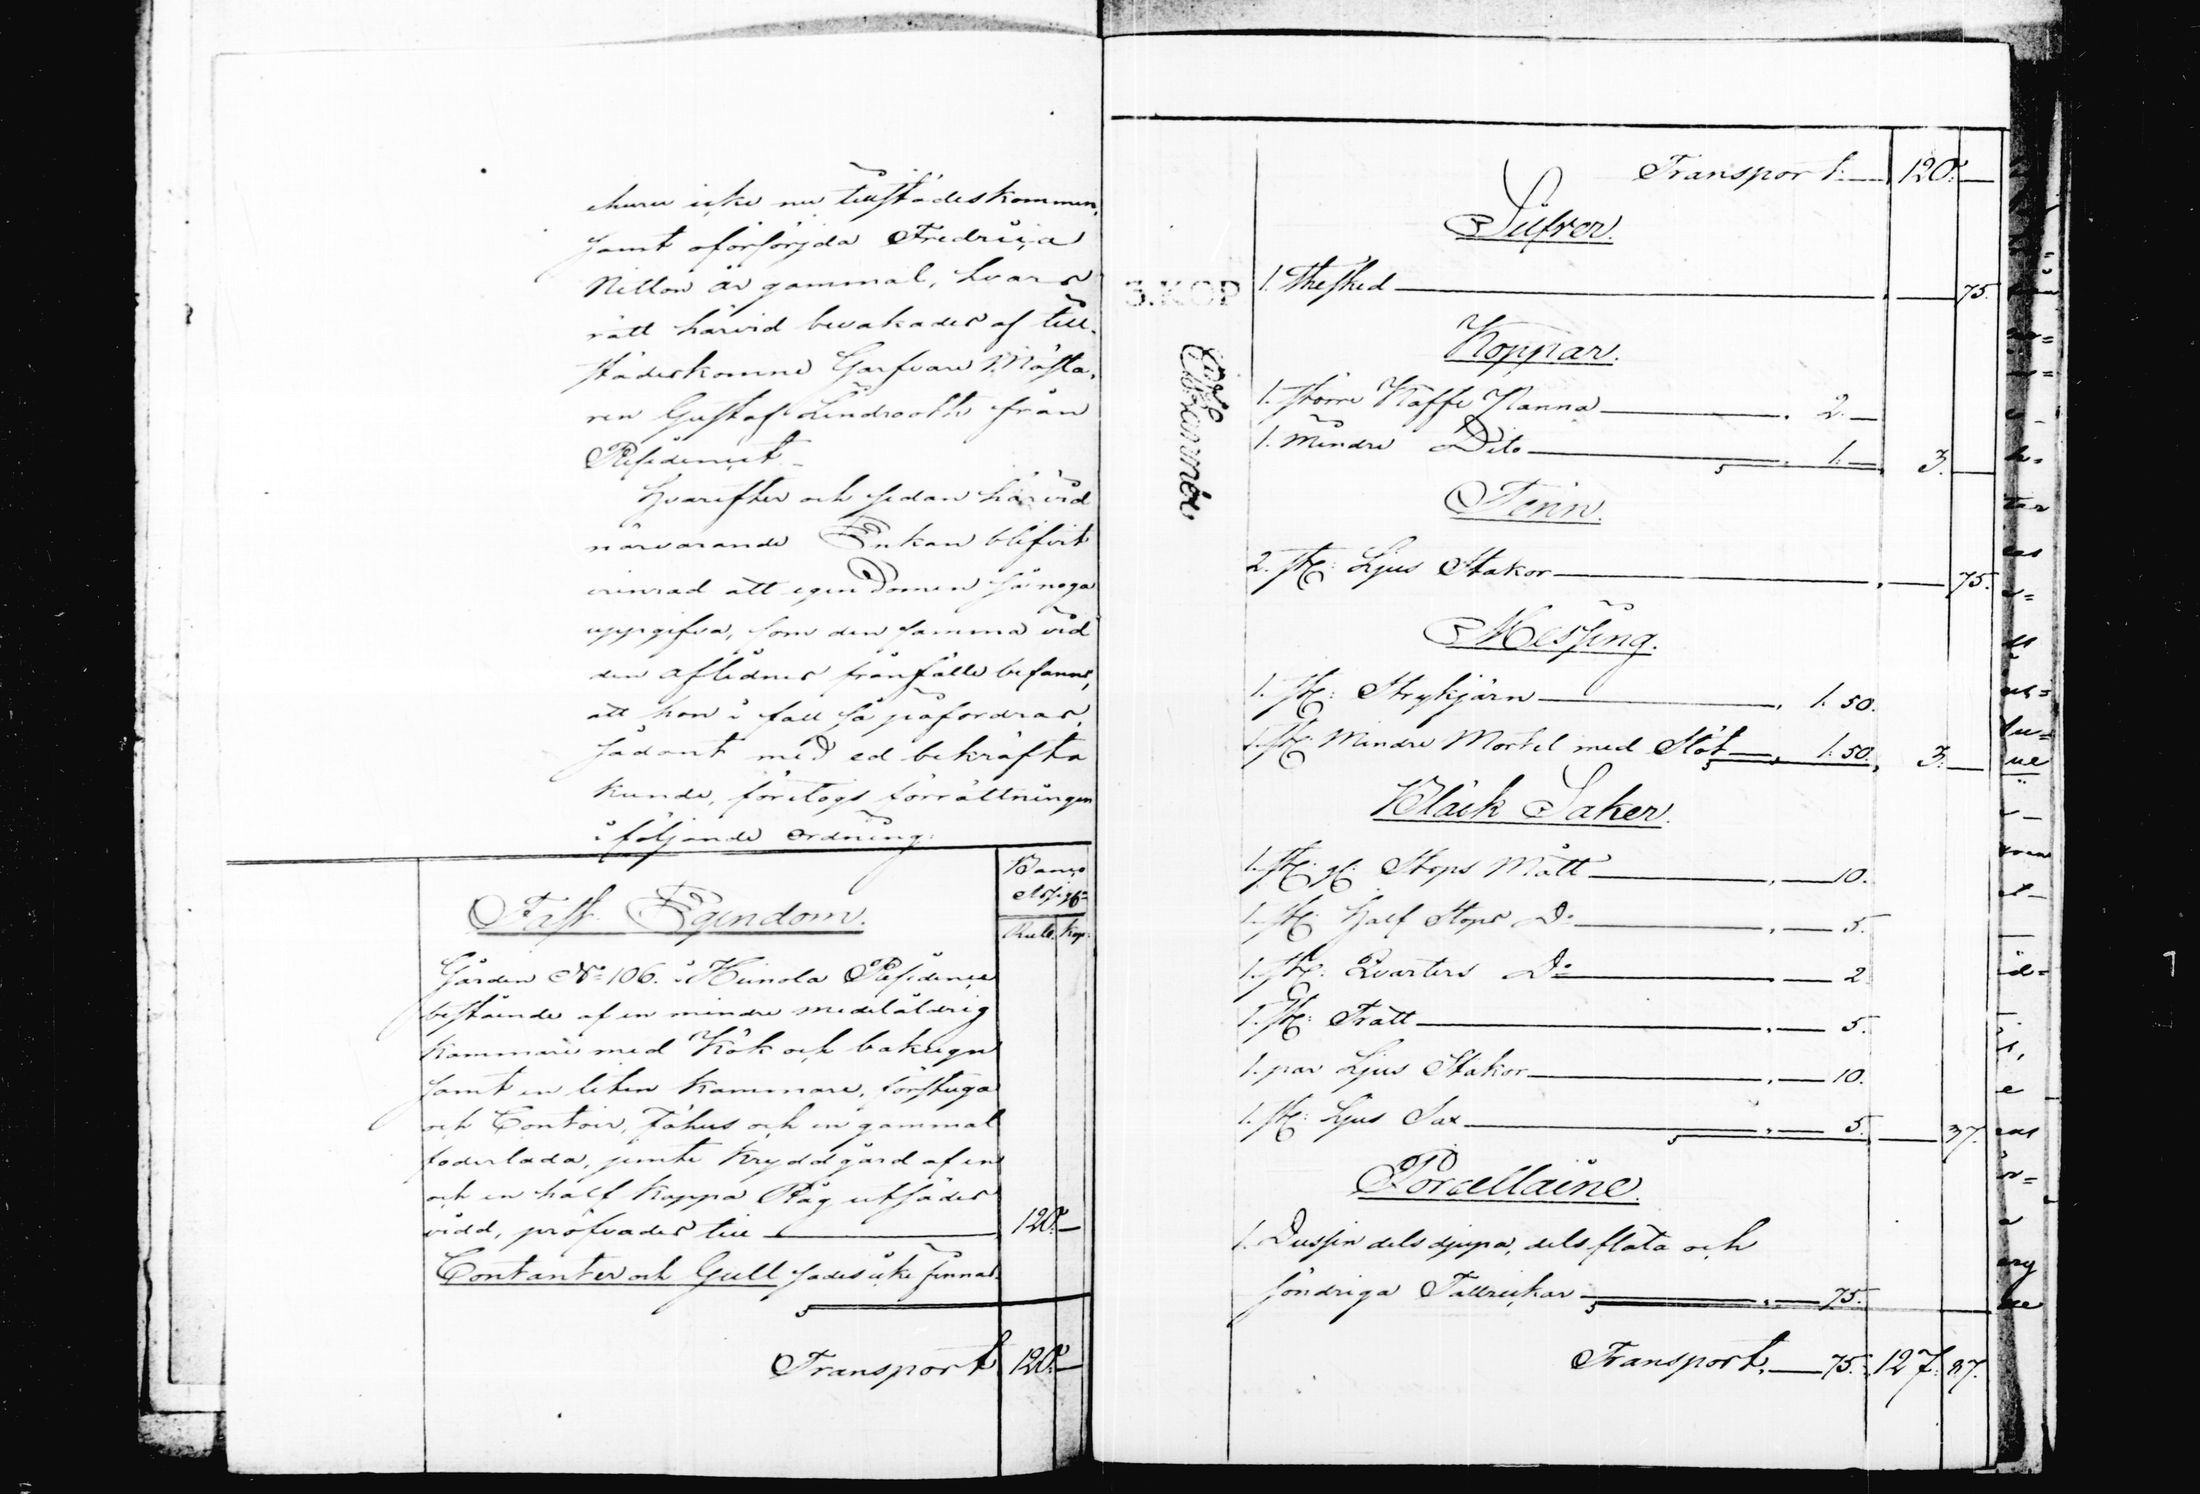 ehuru icke nu tillstädeskommen,
samt oförsörjda Fredrica
Nitton år gammal, hvars
rätt härvid bevakades af till-
städeskomne Garfvare Mästa-
ren Gustaf Lindrooth från
Residencet.
Hvarefter och sedan härvid
närvarande Enkan blifvit
erinrad att egendomen så noga
uppgifva, som den samma vid
den aflednes frånfälle befanns,
att hon i fall så påfordras,
sådant med ed bekräfta
kunde, företogs förrättningen
i följande ordning:
Banco
Assign:
Rub. Kop:
Fast Egendom.
Gården No 106. i Heinola Residence
bestående af en mindre medelåldrig
Kammare med Kök och bakugn
samt en liten Kammare, förstuga
och Contoir, Fähus och en gammal
foderlada, jemte Kryddgård af en
och en half Kappa Råg utsädes
vidd, pröfvades till 120.—
Contanter och Gull sades icke finnas.
Transport 120.—
Transport: 120.—
Silfver.
3.KOP
1. Thesked 75.
Koppar.
1. större Kaffe Kanna 2.—
1. mindre Dito 1.— 3.—
Tenn.
2. st: Ljus Stakar 75.
Messing.
1. st: Strykjärn 1. 50.
1. st: Mindre Mortel med Stöt 1. 50. 3.—
Bläck Saker.
1. st: gl: Stops Mått 10.
1. st: Half Stops Do 5.
1. st: Qvarters Do 2.
1. st: Tratt 5.
1. par Ljus Stakar 10.
1. st: Ljus Sax 5. 37.
Porcellaine.
1. Dussin dels djupa, dels flata och
söndriga Tallrickar 75.
Transport. 75. 127. 87.